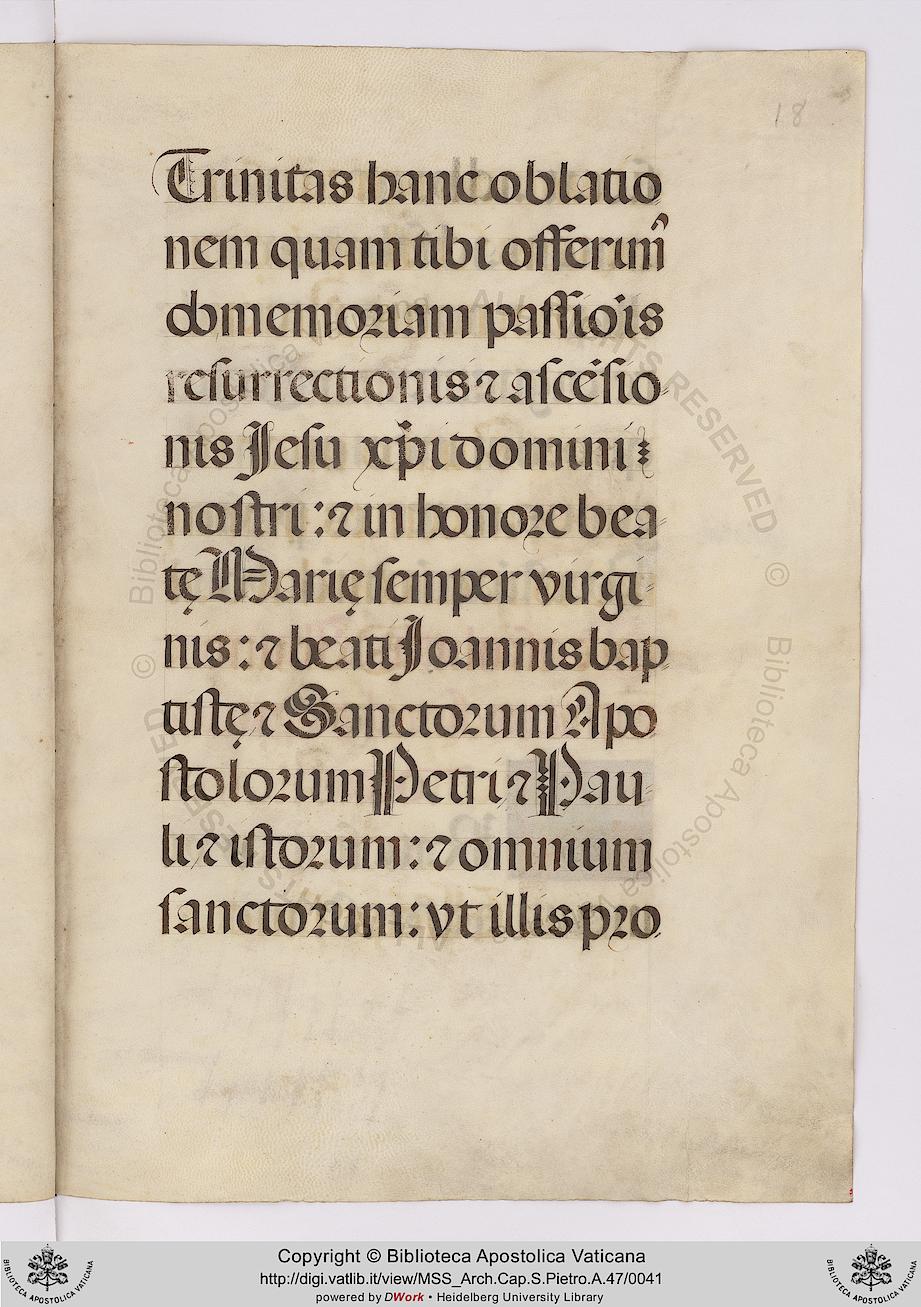 18
Trinitas hanc oblatio
nem quam tibi offerim⁹
obmemoriam passiōis
resurrectionis ⁊ ascēsio-
nis Jesu xp̄i domini
nostri: ⁊ in honore bea-
tę Marię semper virgi-
nis: ⁊ beati Joannis bap
tistę ⁊ Sanctorum Apo
stolorum Petri ⁊ Pau-
li ⁊ istorum: ⁊ omnium
sanctorum: vt illis pro
Copyright © Biblioteca Apostolica Vaticana
http://digi.vatlib.it/view/MSS_Arch.Cap.S.Pietro.A.47/0041
powered by DWork • Heidelberg University Library
BIBLIOTECA APOSTOLICA VATICANA
BIBLIOTECA APOSTOLICA VATICANA